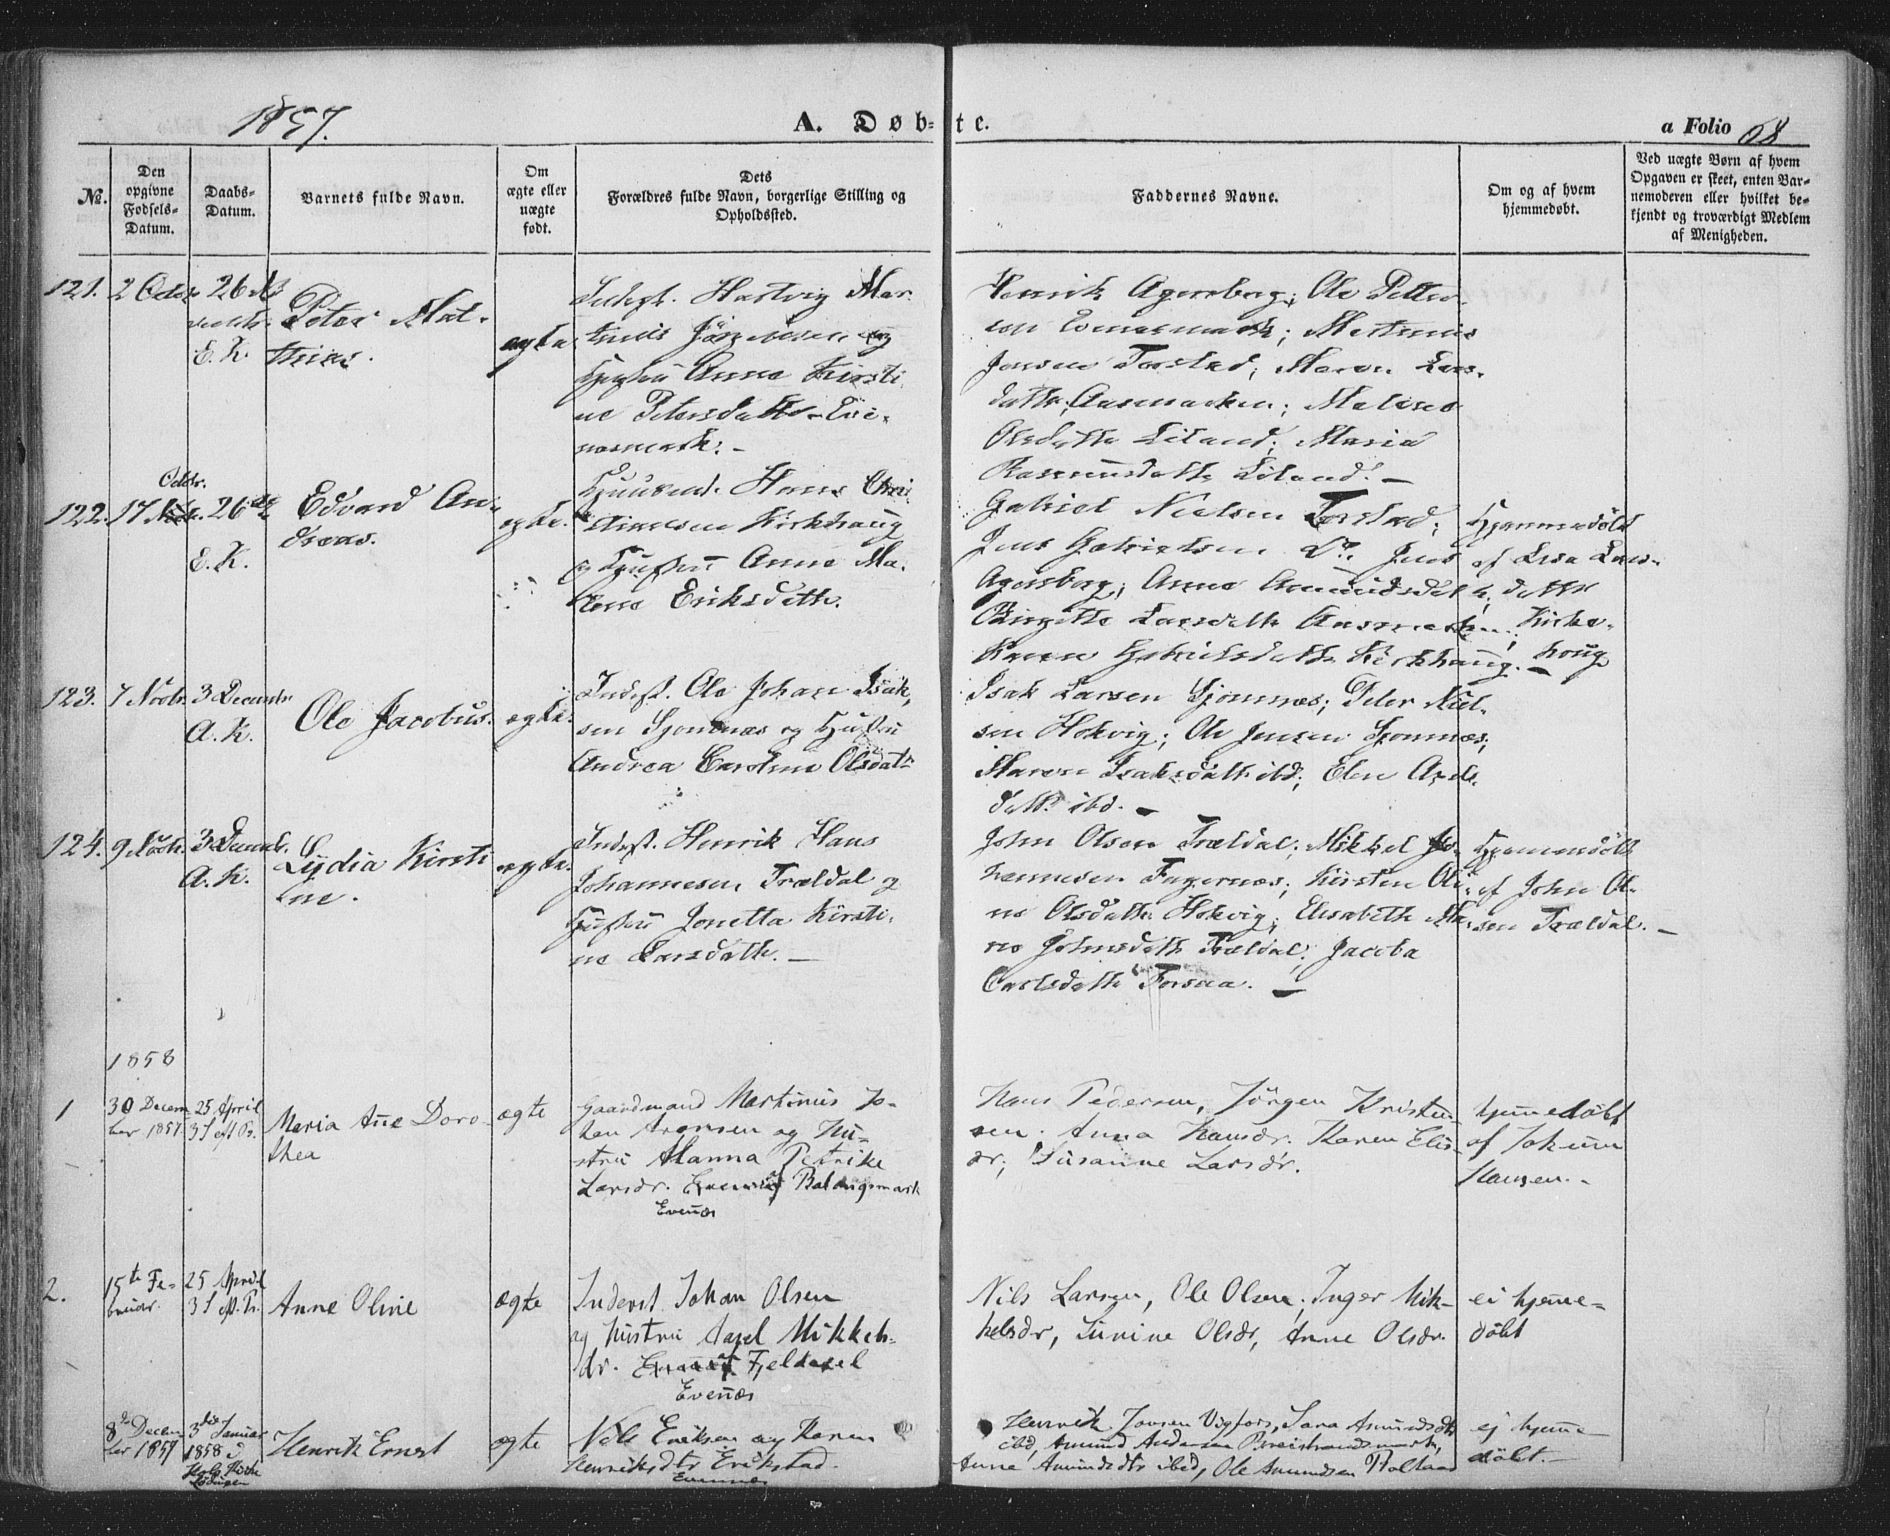 1857.
A. Døb-
te.
a Folio 68
No.
Den
opgivne
Fødsels-
Datum.
Daabs-
Datum.
Barnets fulde Navn.
Om
ægte eller
uægte
født.
Dets
Forældres fulde Navn, borgerlige Stilling og
Opholdssted.
Faddernes Navne.
Om og af hvem
hjemmedøbt.
Ved uægte Børn af hvem
Opgaven er skeet, enten Bar-
nemoderen eller hvilket be-
kjendt og troværdigt Medlem
af Menigheden.
121. 2 Octbr.
26
E. K.
Peter Mat-
thias.
ægte
Inderst. Hartvig Mar-
tinus Jørgensen og
Hustru Anne Kirsti-
ne Petersdatter Eve-
næsmark. -
Henrik Agersborg; Ole Petter-
sen Evenæsmark; Martinus
Jensen Forstad; Maren Lars-
datter Aasmarken;
Olsdatter Liland; Maria
Rasmusdatter Liland. -
122.
Octbr.
17
26de
E. K.
Edvard An-
dreas.
ægte.
Huusmd. Hans Chri-
stiansen Kirkhaug
og Hustru Anne Ma-
lene Eriksdatter.
Gabriel Nielsen Forstad;
Jens Gabrielsen Do. Jens
Agersborg; Anne Amundsdatter;
Birgitte Larsdatter Aasmarken;
Karen Gabrielsdatter Kirkhaug. -
Hjemmedøbt
af Lisa Lars-
datter
Kirke-
houg
123. 7 Novbr. 3 Decembr.
A. K.
Ole Jacobus.
ægte.
Inderst. Ole Johan Isak-
sen Sjomnæs og Hustru
Andrea Caroline Olsdatr
Isak Larsen Sjomnæs; Peter Niel-
sen Hokvig; Ole Jensen Sjomnæs;
Maren Isaksdatter ibd; Elen Ands-
datt. ibd. -
124. 9 Novbr. 3 Decembr.
A. K.
Lydia Kirsti-
ne.
ægte.
Inderst. Henrik Hans
Johannesen Trældal og
Hustru Jonetta Kirsti-
ne Larsdatter. -
John Olsen Trældal; Mikkel Jo-
hannesen Fagernæs; Kirsten Oli-
ne Olsdatter Hokvig; Elisabeth Ma-
ren Johnsdatter Trældal; Jacoba
Carlsdatter Forsaa. -
Hjemmedøbt
af John Ol-
sen Trældal. -
1858
1
30 Decem
ber 1857
25 April
3 S eft P.
Maria Ane Doro-
thea
ægte
Gaardmand Martinus Jo-
han Aronsen og Hu-
stru Hanna Petrike
Larsdr. Evenæs Balangsmark
Evenæs
Hans Pedersen, Jörgen Kristen-
sen. Anna Hansdr. Karen Elis-
dr; Susanne Larsdr.
hjemmedøbt
af Jokum
Hansen. -
2.
15te Fe-
bruar.
25 April
3 S eft. P.
Anne Oline
ægte
Inderst Johan Olsen
og Hustru Mikkels-
dr. Fjeldaxel
Evenæs
Nils Larsen, Ole Olsen; Inger Mik-
kelsdr, Olsdr, Anne Olsdr.
ei hjemme-
døbt
8de Decem
ber 1857
3die Januar
1858 i
Hols Kirke
Lødingen
Henrik Ernst
ægte
Nils Eriksen og Karen
Henriksdtr Erikstad.
Evennes
Henrik Jonsen Vigfors, Sara Amundsdtr
ibd, Amund Andersen Breistrandsmark,
Anne Amundsdtr ibid, Ole Amundsen
ej hjemme-
døbt. -